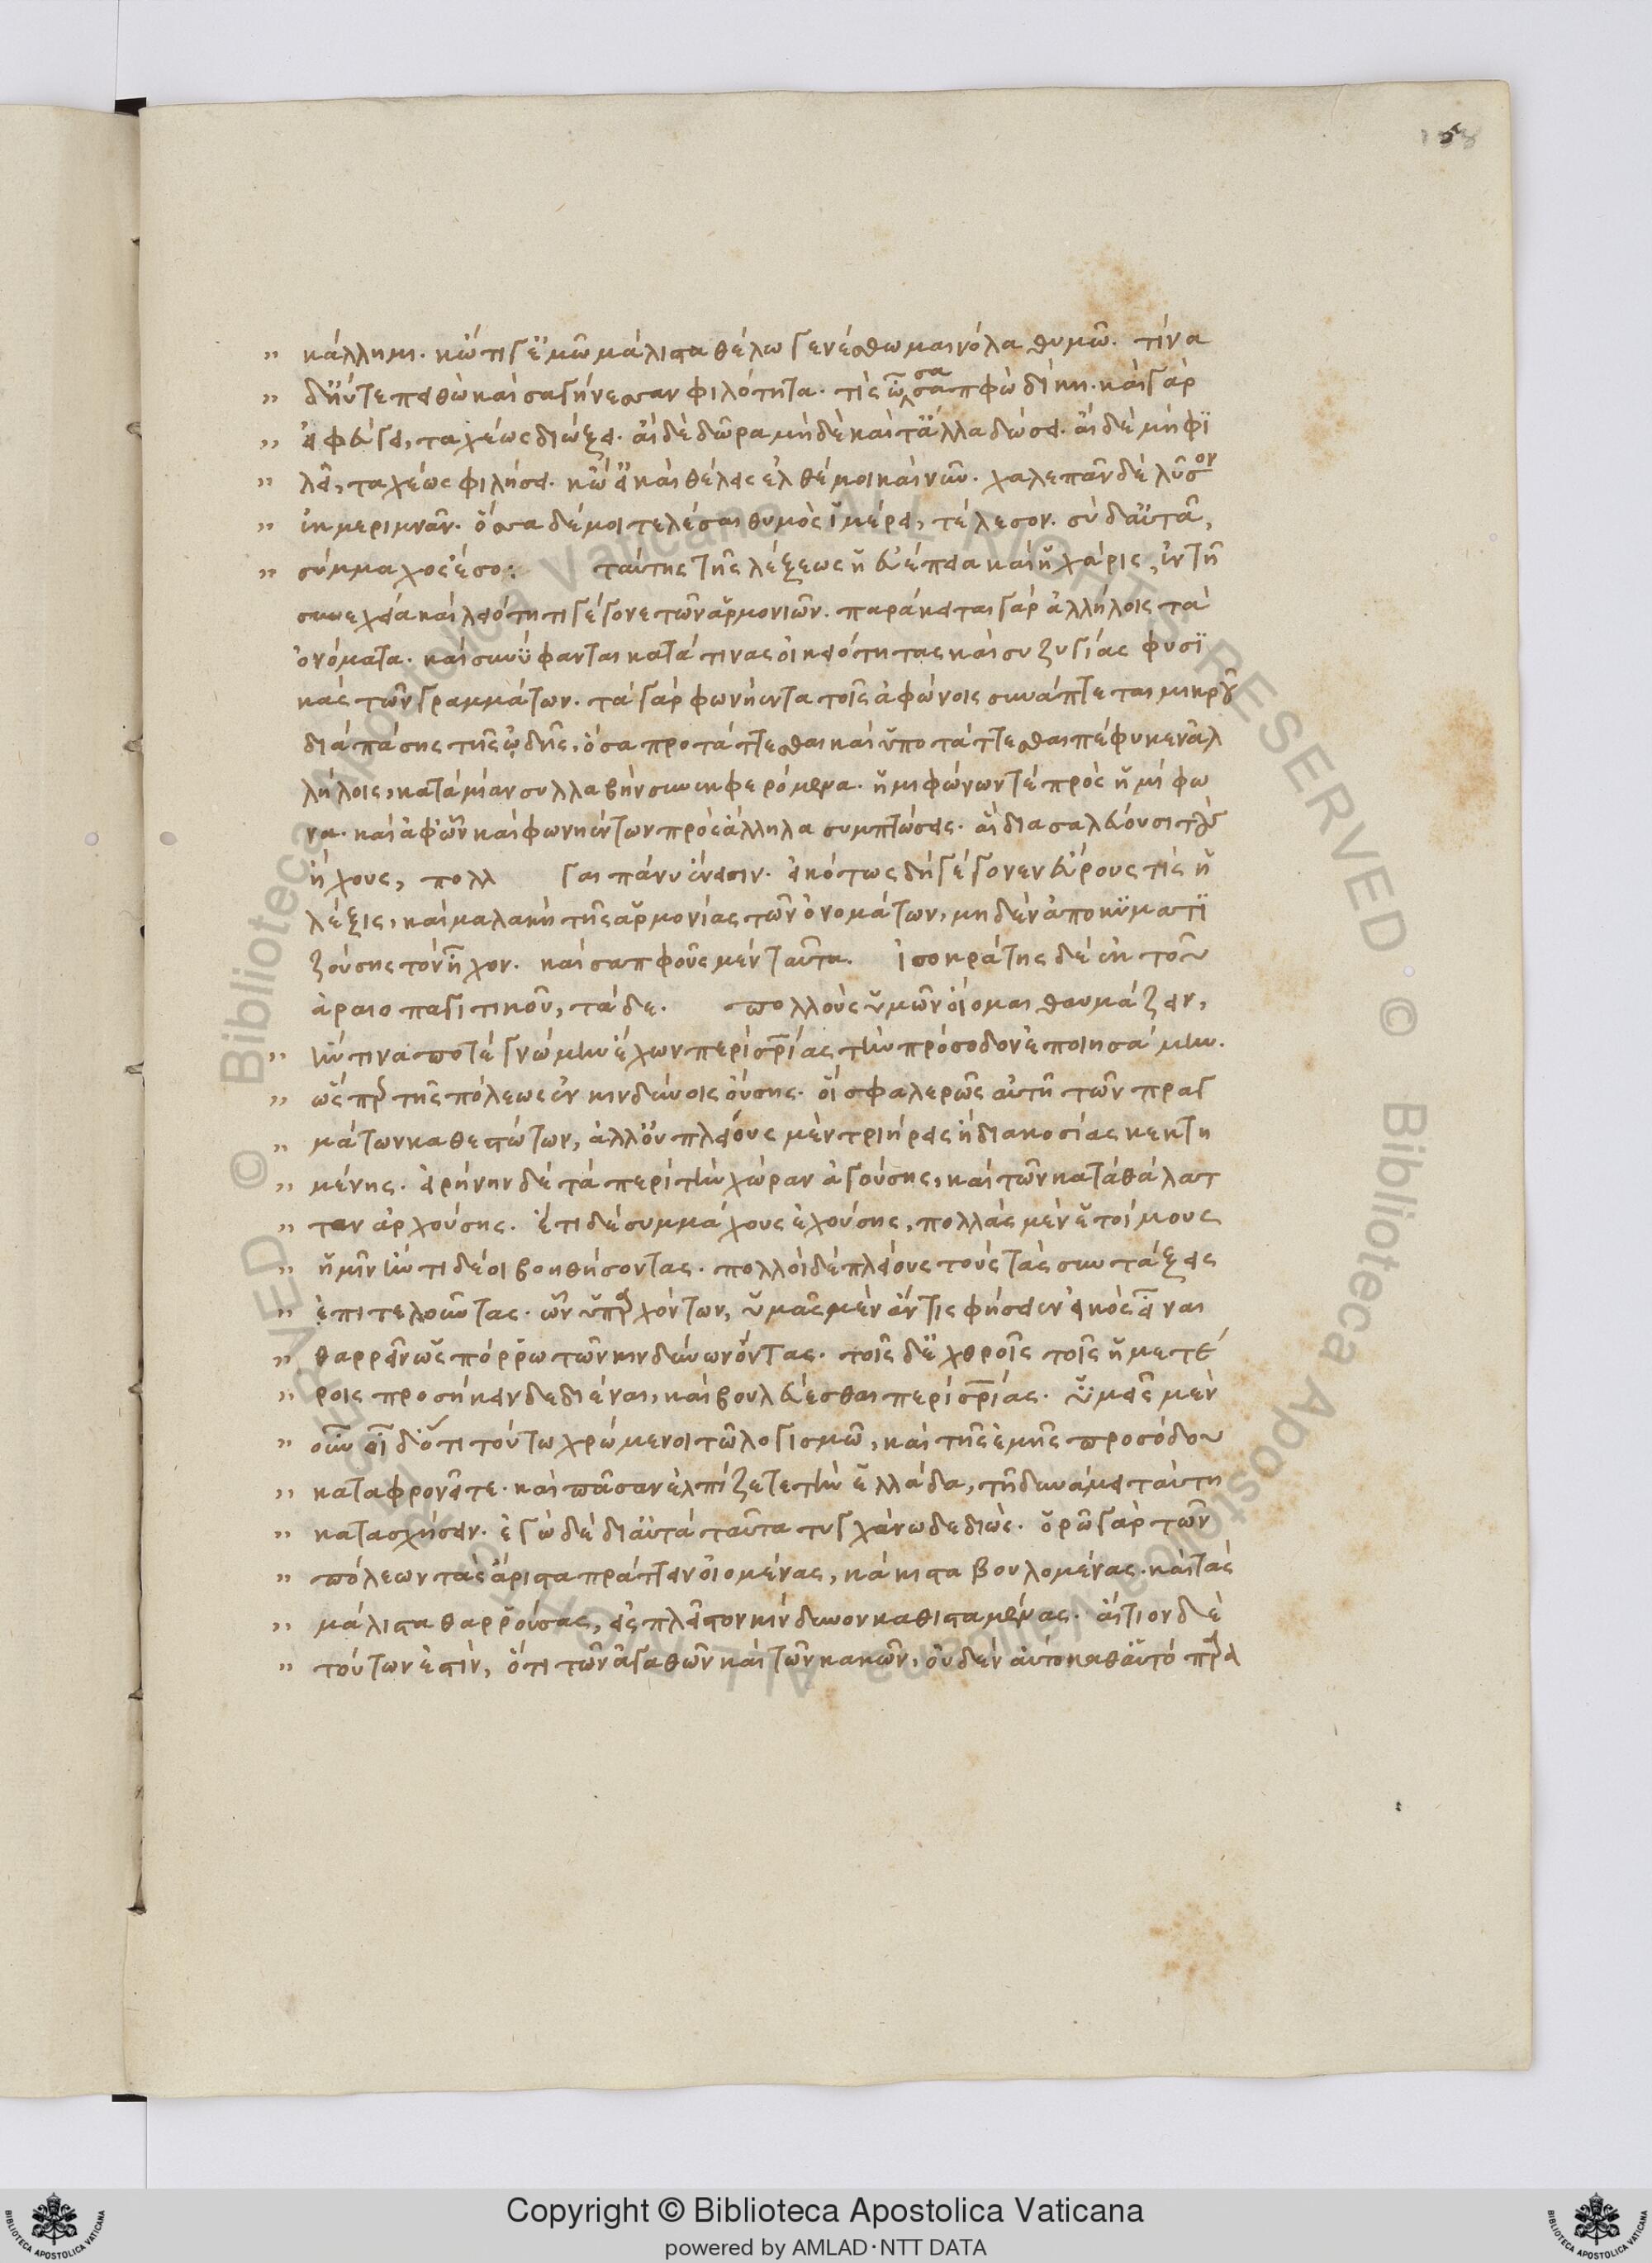 κάλλημι· κὤτι γ' ἐμῶ μάλιστα θέλω γενέσθω μαινόλα θυμῶ. τίνα
δηὖτε πειθὼ καὶ σαγήνεσσαν φιλότητα· τίς ὦ σαπφὼ δίκη· καὶ γὰρ
εἰ φεύγει, ταχέως διώξει· αἰ δὲ δῶρα μὴ δὲ καὶ τἄλλα δώσει· αἰ δὲ μὴ φι
λεῖ, ταχέως φιλήσει· κὤ εἰ καὶ θέλεις ἐλθέ μοι καὶ νῦν· χαλεπᾶν δὲ λῦσον
ἐκ μεριμνᾶν· ὅσσα δέ μοι τελέσαι θυμὸς ἱμέρει, τέλεσον· σὺ δ' αὐτᾶ,
σύμμαχος ἔσο: ταύτης τῆς λέξεως ἡ εὐέπεια καὶ ἡ χάρις, ἐν τῆ
συνεχεία καὶ λειότητι γέγονε τῶν ἁρμονιῶν· παράκειται γὰρ ἀλλήλοις τὰ
ὀνόματα· καὶ συνύφανται κατά τινας οἰκειότητας καὶ συζυγίας φυσι
κὰς τῶν γραμμάτων· τὰ γὰρ φωνήεντα τοῖς ἀφώνοις συνάπτεται μικροῦ
διὰ πάσης τῆς ᾠδῆς, ὅσα προτάττεσθαι καὶ ὑποτάττεσθαι πέφυκεν ἀλ
λήλοις, κατὰ μίαν συλλαβὴν συνεκφερόμενα· ἡμιφώνων τὲ πρὸς ἡμίφω
να· καὶ ἀφώνων καὶ φωνηέντων πρὸς ἄλληλα συμπτώσεις· αἳ διασαλεύουσι τοὺς
ἤχους, πολλ γαι πάνυ ἔνεισιν· εἰκότως δὴ γέγονεν εὔρους τίς ἡ
λέξις, καὶ μαλακὴ τῆς ἁρμονίας τῶν ὀνομάτων, μηδὲν ἀποκυματι
ζούσης τὸν ἦχον· καὶ σαπφοῦς μὲν ταῦτα. ἰσοκράτης δὲ ἐκ τοῦ
ἀραιοπαγιτικοῦ, τάδε. πολλοὺς ὑμῶν οἴομαι θαυμάζειν,
ἥν τινα ποτὲ γνώμην ἔχων περὶ σωτηρίας τὴν πρόσοδον ἐποιησάμην.
ὥσπερ τῆς πόλεως ἐν κινδύνοις οὔσης· οἳ σφαλερῶς αὐτῆ τῶν πραγ
μάτων καθεστώτων, ἀλλ' οὐ πλείους μὲν τριήρεις ἢ διακοσίας κεκτη
μένης· εἰρήνην δὲ τὰ περὶ τὴν χώραν ἀγούσης, καὶ τῶν κατὰ θάλατ
ταν ἀρχούσης. ἔτι δὲ συμμάχους ἐχούσης, πολλὰς μὲν ἑτοίμους
ἡμῖν ἤν τι δέοι βοηθήσοντας· πολλοὶ δὲ πλείους τοὺς τὰς συντάξεις
ἐπιτελοῦντας· ὧν ὑπαρχόντων, ὑμᾶς μὲν ἄν τις φήσειεν εἰκὸς εἶναι
θαρρεῖν ὡς πόρρω τῶν κινδύνων ὄντας· τοῖς δ' ἐχθροῖς τοῖς ἡμετέ
ροις προσήκειν δεδιέναι, καὶ βουλεύεσθαι περὶ σωτηρίας. ὑμεῖς μὲν
οὖν οἶδ' ὅτι τούτω χρώμενοι τῶ λογισμῶ, καὶ τῆς ἐμῆς προσόδου
καταφρονεῖτε· καὶ πᾶσαν ἐλπίζετε τὴν ἑλλάδα, τῆ δυνάμει ταύτη
κατασχήσειν· ἐγὼ δὲ δι' αὐτὰ ταῦτα τυγχάνω δεδιώς· ὁρῶ γὰρ τῶν
πόλεων τὰς ἄριστα πράττειν οἰομένας, κάκιστα βουλομένας· καὶ τὰς
μάλιστα θαρρούσας, εἰς πλεῖστον κίνδυνον καθισταμένας· αἴτιον δὲ
τούτων ἐστὶν, ὅτι τῶν ἀγαθῶν καὶ τῶν κακῶν, οὐδὲν αὐτὸ καθ' αὑτὸ παρα
Copyright © Biblioteca Apostolica Vaticana
powered by AMLAD·NTT DATA